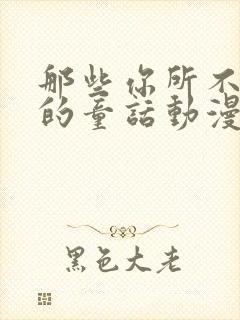 那些你所不
的童話動漫
黑色大老